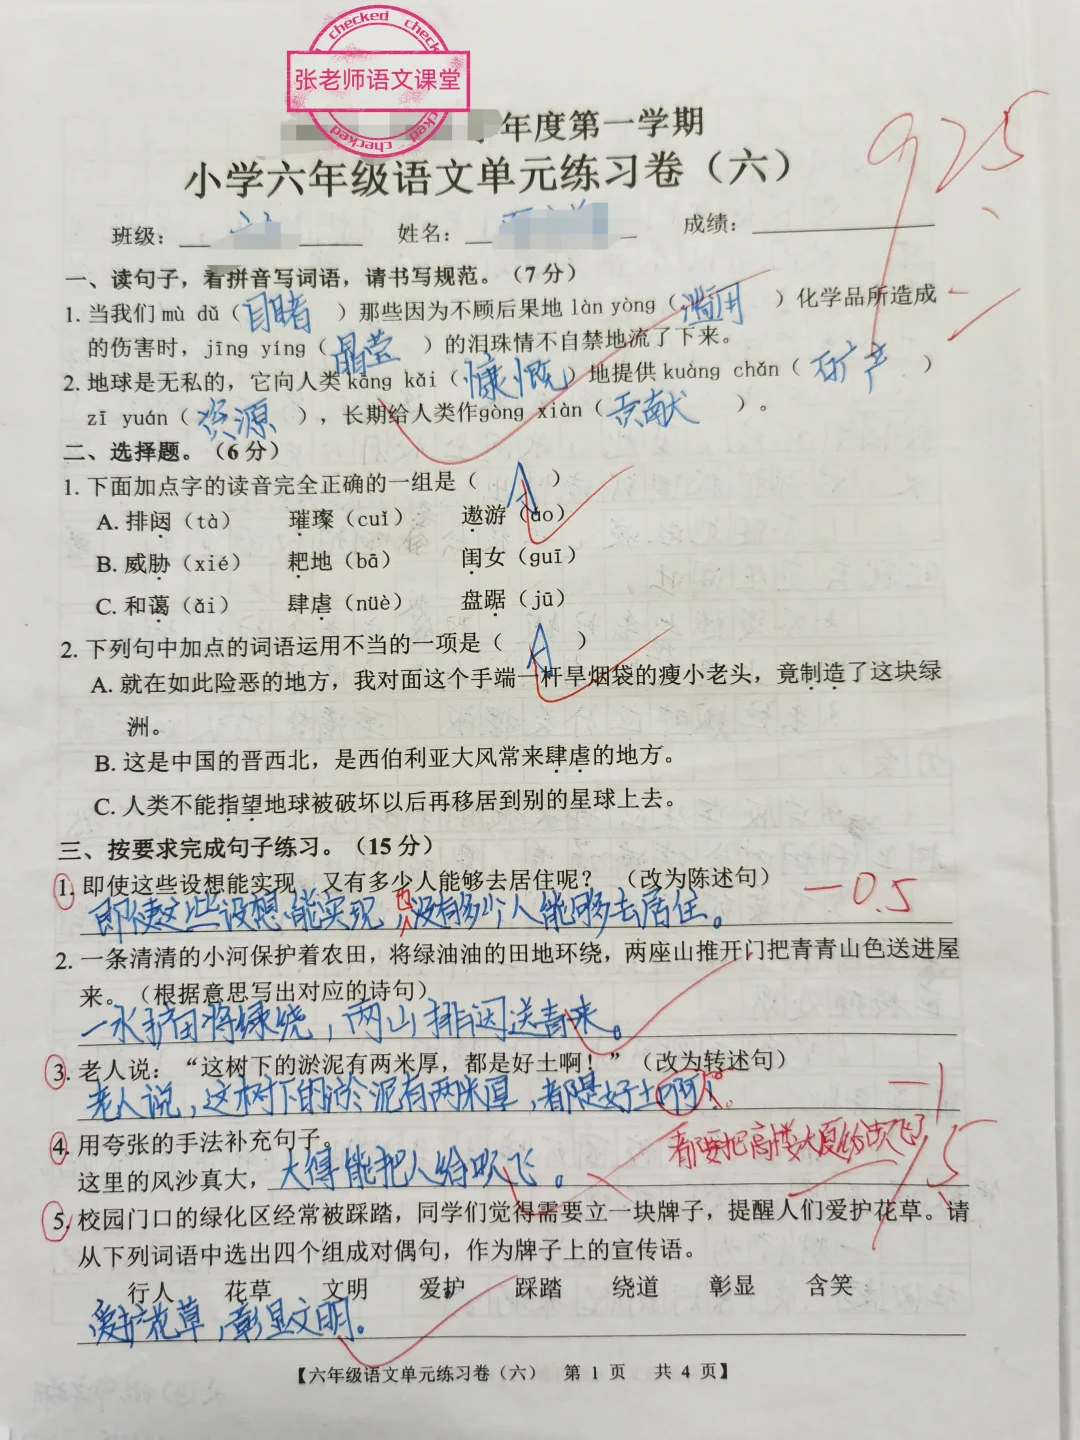 checked checked
张老师语文课堂
checked checked
年度第一学期
小学六年级语文单元练习卷（六）
925
班级：
姓名：
成绩：
一、读句子，看拼音写词语，请书写规范。（7 分）
1. 当我们 mù dǔ（目睹）那些因为不顾后果地 làn yòng（滥用）化学品所造成
的伤害时，jīng yíng（晶莹）的泪珠情不自禁地流了下来。
2. 地球是无私的，它向人类 kāng kǎi（慷慨）地提供 kuàng chǎn（矿产）
zī yuán（资源），长期给人类作 gòng xiàn（贡献）。
二、选择题。（6 分）
1. 下面加点字的读音完全正确的一组是（A）
A. 排闼（tà） 璀璨（cuǐ） 遨游（áo）
B. 威胁（xié） 耙地（bā） 闺女（guī）
C. 和蔼（ǎi） 肆虐（nüè） 盘踞（jū）
2. 下列句中加点的词语运用不当的一项是（A）
A. 就在如此险恶的地方，我对面这个手端一杆旱烟袋的瘦小老头，竟制造了这块绿
洲。
B. 这是中国的晋西北，是西伯利亚大风常来肆虐的地方。
C. 人类不能指望地球被破坏以后再移居到别的星球上去。
三、按要求完成句子练习。（15 分）
1. 即使这些设想能实现，又有多少人能够去居住呢？（改为陈述句）
-0.5
即使这些设想能实现 也没有多少个人能够去居住。
2. 一条清清的小河保护着农田，将绿油油的田地环绕，两座山推开门把青青山色送进屋
来。（根据意思写出对应的诗句）
一水护田将绿绕，两山排闼送青来。
3. 老人说：“这树下的淤泥有两米厚，都是好土啊！”（改为转述句）
老人说，这树下的淤泥有两米厚，都是好土啊！。
-1
4. 用夸张的手法补充句子。
看要把高楼大厦给吹飞了
这里的风沙真大，大得能把人给吹飞。
5. 校园门口的绿化区经常被踩踏，同学们觉得需要立一块牌子，提醒人们爱护花草。请
从下列词语中选出四个组成对偶句，作为牌子上的宣传语。
行人 花草 文明 爱护 踩踏 绕道 彰显 含笑
爱护花草，彰显文明。
【六年级语文单元练习卷（六） 第 1 页 共 4 页】